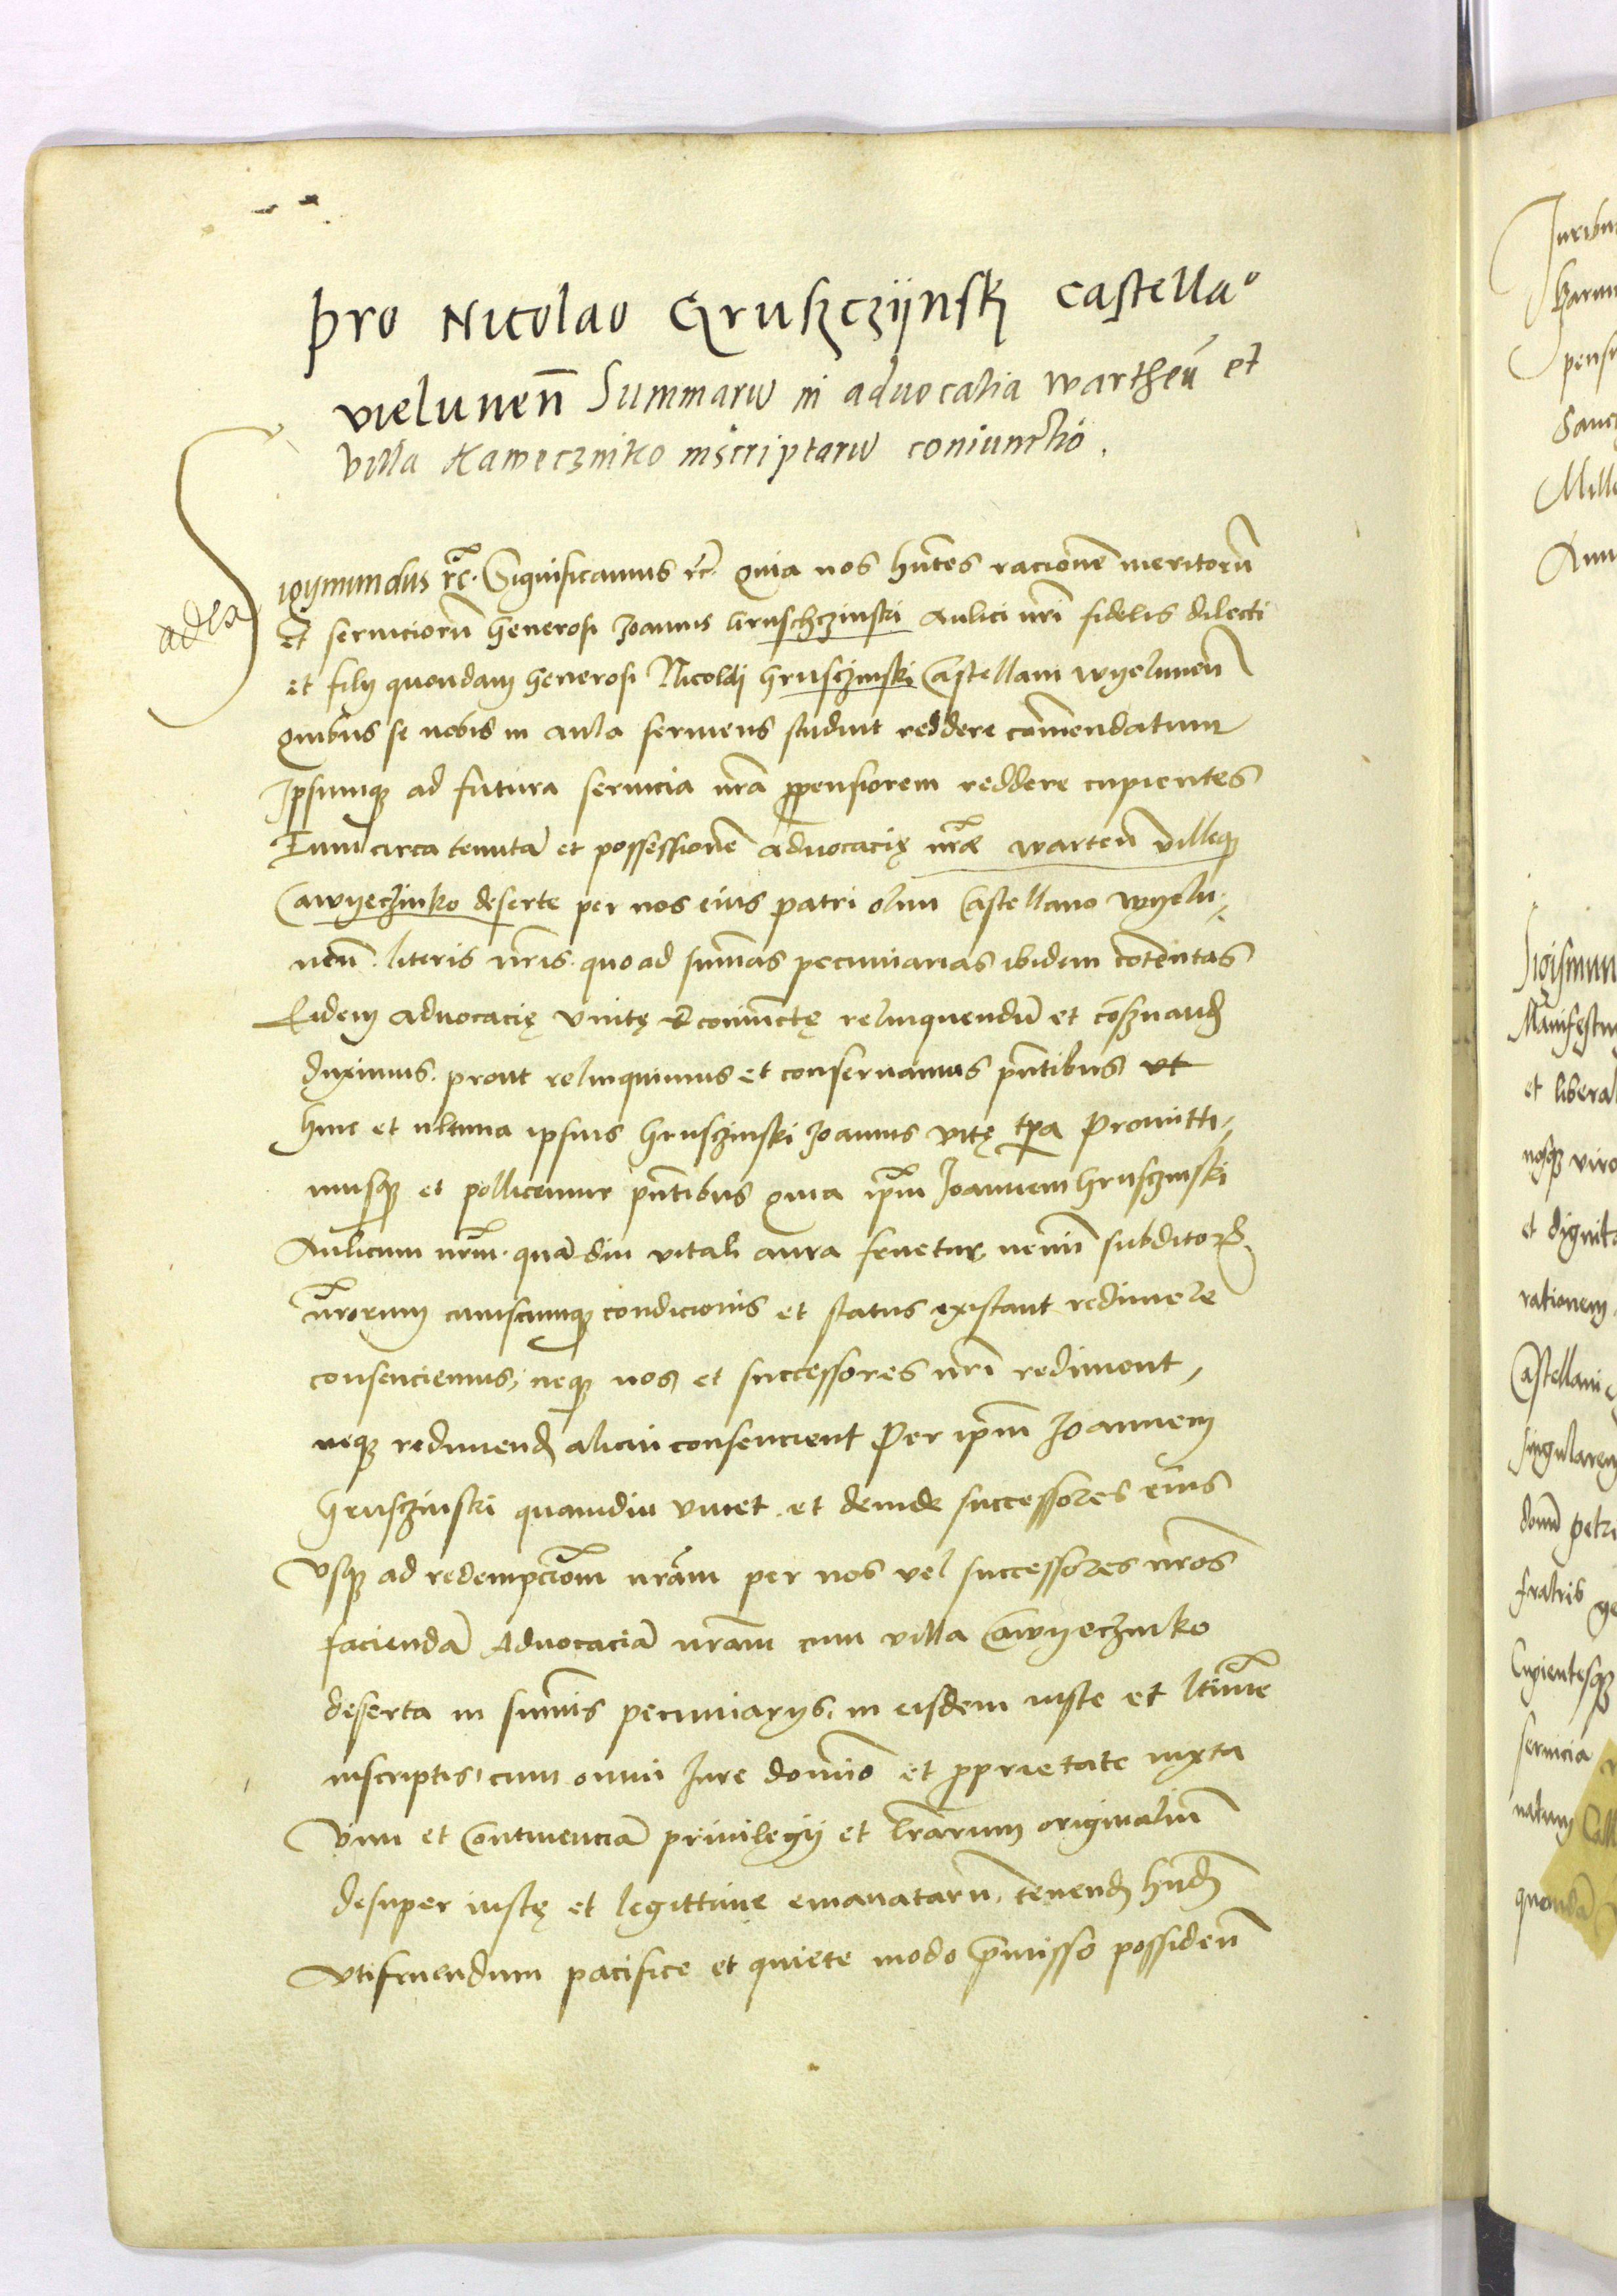 Pro Nicolao Gruszczijnsk Castella°
vielunen̄ Summarū in aduocatia warthen̄ et
villa Kaweczniko inscriptarū coniunctio.
Sigijmundus rc̄. Significamus rc̄. quia nos hn̄tes racionē meritorū
et seruiciorū Generosi Joannis Gruschczinski Aulici nr̄i fidelis dilecti
et filij quondam Generosi Nicolai Grusczinski Castellani Wyelunen̄
quibus se nobis in aula seruiens studuit reddere com̄endatum
Ipsumq ad futura seruicia nr̄a ꝓpensiorem reddere cupientes
Eum circa tenutā et possessionē aduocacię nr̄æ warten̄ villeq
Cawyeczniko deserte per nos eius patri olim Castellano Wyelu-
nen̄. literis nr̄is. quo ad sum̄as pecuniarias ibidem cōtentas
Eidem aduocacię vnitę & coniunctę relinquendū et cōseruand
duximus. prout relinquimus et conseruamus pn̄tibus vt
hinc et vltima ipsius Grusczinski Joannis vitę tp̄a Promitti-
musq et pollicemur pn̄tibus quia ip̄m Joannem Grusczinski
Aulicum nr̄m. quādiu vitali aura fruetur nemini subditoꝝ
nr̄orum cuiuscumq condicionis et status existant redimere
consenciemus, neq nos et successores nr̄i rediment,
neq redimend alicui consencient Per ip̄m Joannem
Grusczinski quamdiu viuet. et deinde successores eius
Vsq ad redempciom̄ nr̄am per nos vel successores nr̄os
faciendā Aduocaciā nr̄am cum villa Cawyeczniko
deserta in sum̄is pecuniarijs, in eisdem iuste et ltīme
inscriptis, cum omni Iure domīo et ꝓprietate iuxta
vim et Continenciā priuilegij et lr̄arum originaliū
desuper iustę et legittime emanatarū, tenend hn̄d
Vtifruendum pacifice et quiete modo p̄misso possiden̄
Sigismun
Manifestu
et libera
nosq viro
et dignita
rationem
Castellani
singularem
petri
fratris ge
Cupientesq
seruicia
natum
quondā
Iuribu
pensi
Sanc
Mill
Ann